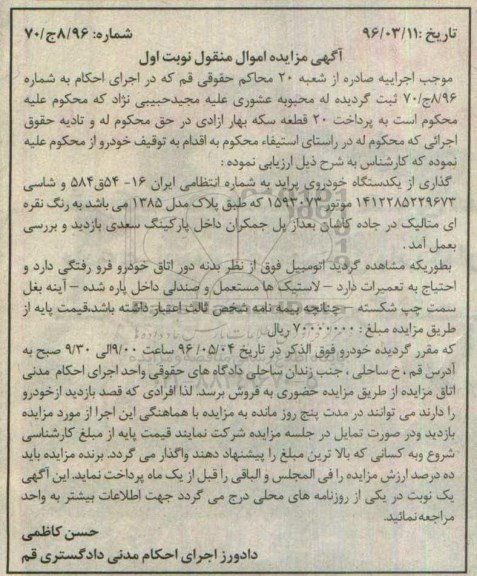 تاریخ :۹۶/۰۳/۱۱
شماره: ۸/۹۶ج/۷۰
آگهی مزایده اموال منقول نوبت اول
موجب اجراییه صادره از شعبه ۲۰ محاکم حقوقی قم که در اجرای احکام به شماره
۸/۹۶ج/۷۰ ثبت گردیده له محبوبه عشوری علیه مجیدحبیبی نژاد که محکوم علیه
محکوم است به پرداخت ۲۰ قطعه سکه بهار ازادی در حق محکوم له و تادیه حقوق
اجرائی که محکوم له در راستای استیفاء محکوم به اقدام به توقیف خودرو از محکوم علیه
نموده که کارشناس به شرح ذیل ارزیابی نموده :
گذاری از یکدستگاه خودروی پراید به شماره انتظامی ایران ۱۶- ۵۴ق۵۸۴ و شاسی
۱۴۱۲۲۸۵۲۲۹۶۷۳ موتور ۱۵۹۳۰۷۳ که طبق پلاک مدل ۱۳۸۵ می باشد به رنگ نقره
ای متالیک در جاده کاشان بعداز پل جمکران داخل پارکینگ سعدی بازدید و بررسی
بعمل آمد .
بطوریکه مشاهده گردید اتومبیل فوق از نظر بدنه دور اتاق خودرو فرو رفتگی دارد و
احتیاج به تعمیرات دارد – لاستیک ها مستعمل و صندلی داخل پاره شده – آینه بغل
سمت چپ شکسته – چنانچه بیمه نامه شخص ثالث اعتبار داشته باشد،قیمت پایه از
طریق مزایده مبلغ : ۷۰۰۰۰۰۰۰ ریال
که مقرر گردیده خودرو فوق الذکر در تاریخ ۹۶/۰۵/۰۴ ساعت ۹/۰۰الی ۹/۳۰ صبح به
آدرس قم ، خ ساحلی ، جنب زندان ساحلی دادگاه های حقوقی واحد اجرای احکام مدنی
اتاق مزایده از طریق مزایده حضوری به فروش برسد. لذا افرادی که قصد بازدید ازخودرو
را دارند می توانند در مدت پنج روز مانده به مزایده با هماهنگی این اجرا از مورد مزایده
بازدید ودر صورت تمایل در جلسه مزایده شرکت نمایند قیمت پایه از مبلغ کارشناسی
شروع وبه کسانی که بالا ترین مبلغ را پیشنهاد دهند واگذار می گردد. برنده مزایده باید
ده درصد ارزش مزایده را فی المجلس و الباقی را قبل از یک ماه پرداخت نماید. این آگهی
یک نوبت در یکی از روزنامه های محلی درج می گردد جهت اطلاعات بیشتر به واحد
مراجعه نمائید.
حسن کاظمی
دادورز اجرای احکام مدنی دادگستری قم